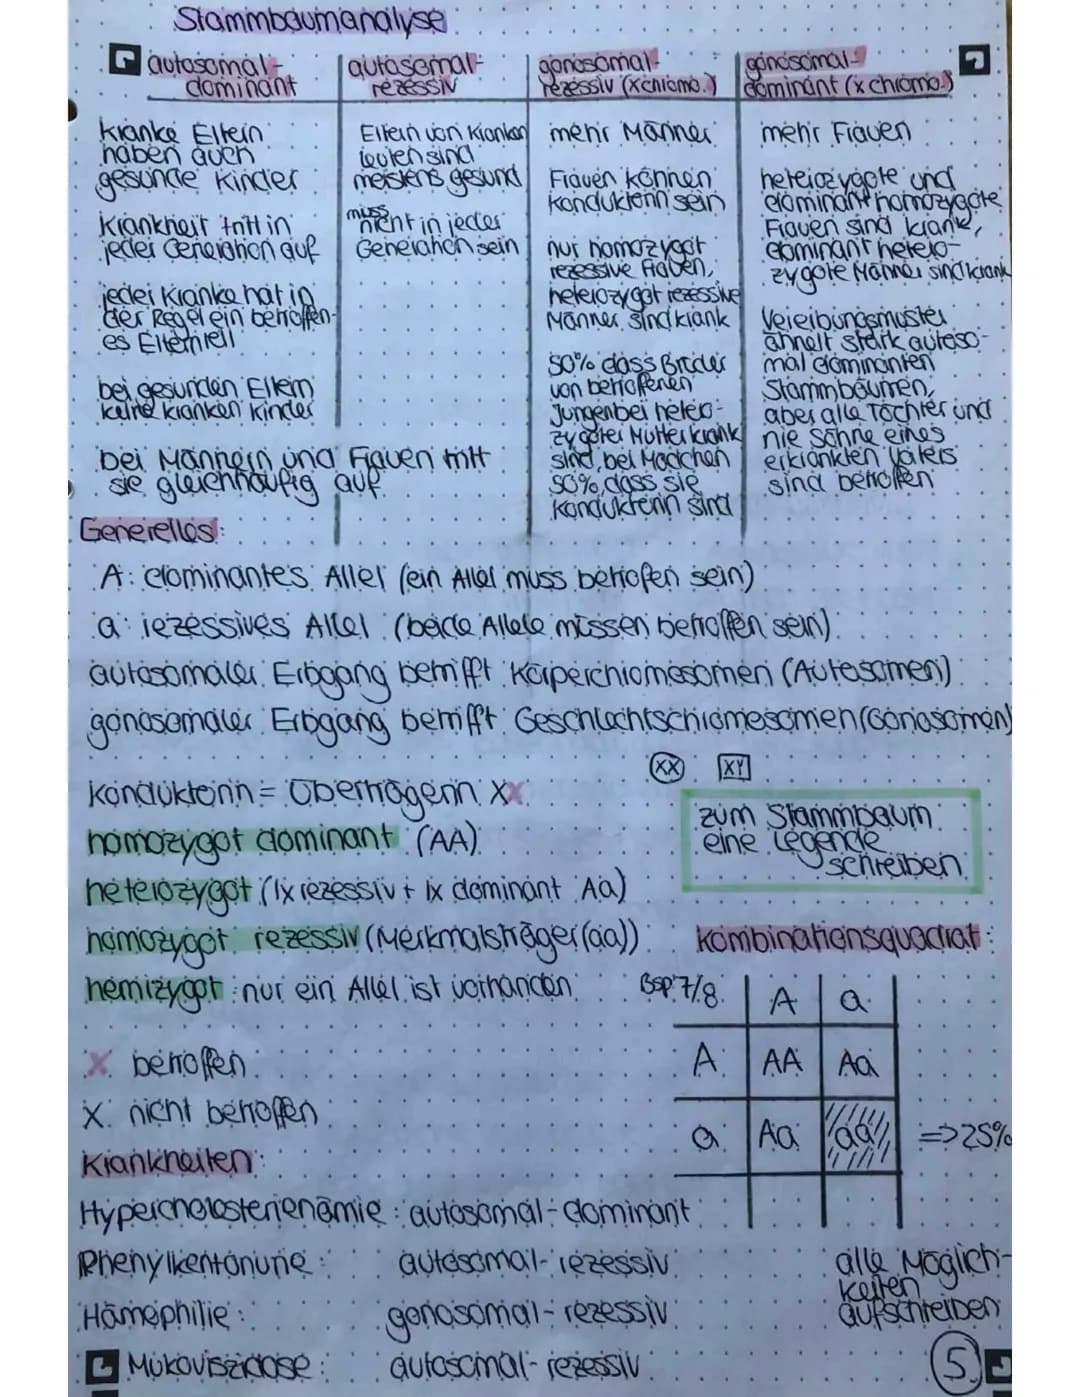 Stammbaumanalyse
autosomal-
dominant
kranke Eltern
haben auch
gesunde Kinder
Krankheit tritt in
jeder Generation auf
jeder Kranke hat in
der Regel ein betroffen-
es Elternteil
bei gesunden Eltern
keine kranken Kinder
bei Männern und Frauen tritt
sie gleichhäufig auf
autosomal-
rezessiv
Eltern von Kranken
leuten sind
meistens gesund
muss
nicht in jeder
Generation sein
gonosomal-
rezessiv (x chromo.)
mehr Männer
Frauen können
Konduktorin sein
nur homozygot
rezessive Frauen,
heterozygot rezessive
Männer sind krank
50% dass Brüder
von betroffenen
Jungen bei hetero-
zygoter Mutter krank
sind, bei Mädchen
50%, dass sie
Konduktorin sind
gonosomal-
dominant (x chromo.)
mehr Frauen
heterozygote und
dominant homozygote
Frauen sind krank,
dominant hetero-
zygote Männer sind krank
Vererbungsmuster
ähnelt stark autoso-
mal dominanten
Stammbäumen,
aber alle Töchter und
nie Söhne eines
erkrankten Vaters
sind betroffen
Generelles:
A: dominantes Allel (ein Allel muss betroffen sein)
a: rezessives Allel (beide Allele müssen betroffen sein)
autosomaler Erbgang betrifft Körperchromosomen (Autosomen)
gonosomaler Erbgang betrifft Geschlechtschromosomen (Gonosomen)
XX XY
Konduktorin = Überträgerin XX
homozygot dominant (AA)
heterozygot (1x rezessiv + 1x dominant Aa)
homozygot rezessiv (Merkmalsträger (aa))
hemizygot: nur ein Allel ist vorhanden
x betroffen
x nicht betroffen
zum Stammbaum
eine Legende
schreiben
Kombinationsquadrat:
Bsp 7/8 A a
A AA Aa
a Aa aa => 25%
alle Möglich-
keiten
aufschreiben
Krankheiten:
Hypercholosterienämie: autosomal-dominant
Phenylkentonurie: autosomal-rezessiv
Hämophilie: gonosomal-rezessiv
Mukoviszidose: autosomal-rezessiv
5